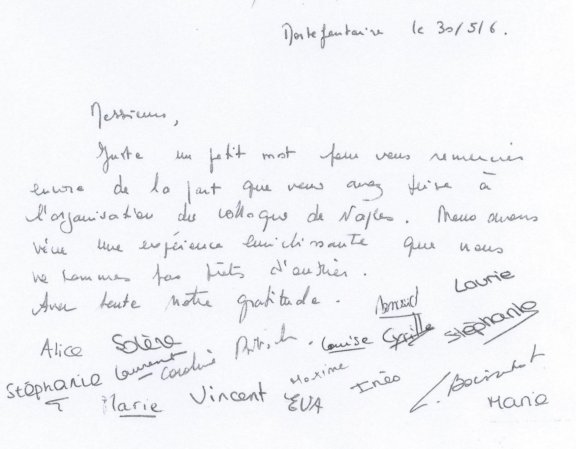 Mortefontaine le 30/5/6.
Messieurs,
Juste un petit mot pour vous remercier
encore de la part que vous avez prise à
l'organisation du colloque de Naples. Nous avons
vécu une expérience enrichissante que nous
ne sommes pas prêts d'oublier.
Avec toute notre gratitude.
Arnaud Laurie
Alice Solène Louise Cyrille Stéphanie
Stéphanie Laurent Caroline
Marie Vincent Maxime EVA Inès
Marie